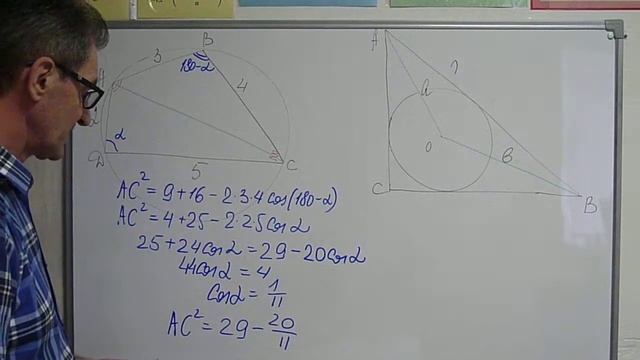 B
A
3
180-α
4
α
D
5
C
AC² = 9+16 - 2·3·4 cos(180-α)
AC² = 4+25 - 2·2·5 cosα
25+24cosα = 29-20cosα
44cosα = 4
cosα = 1/11
AC² = 29 - 20/11
A
a
?
O
B
C
B